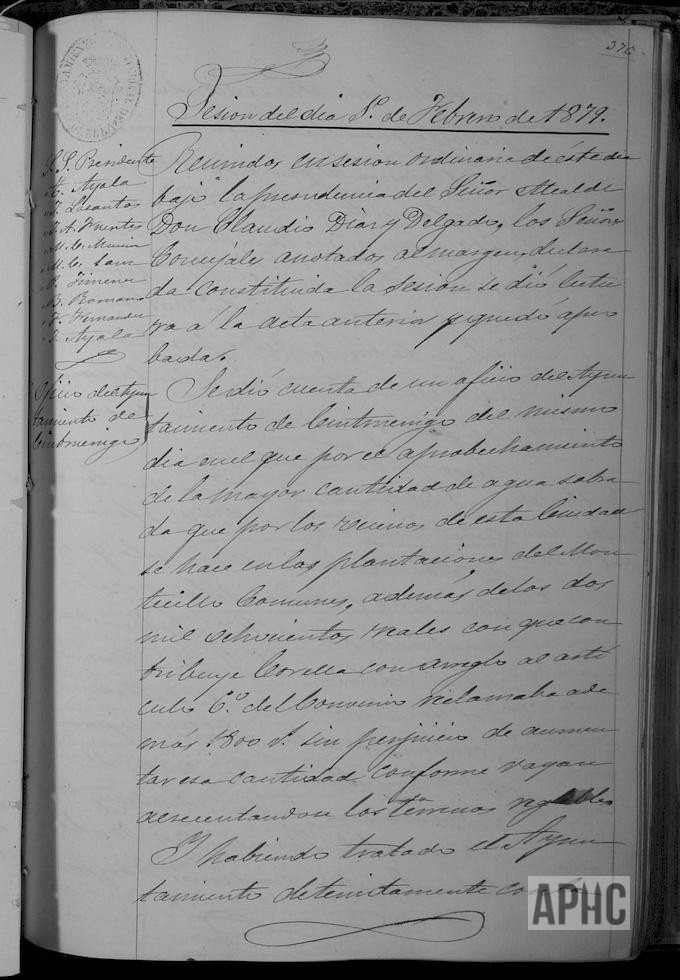 376
Sesion del dia 1º de Febrero de 1879.
S. S. Presidente
Ayala
Losantos
A. Fuentes
M. C.
M. C. Sanz
Jimenez
B. Romano
F. Fernandez
Ayala
Reunidos en sesion ordinaria de éste dia
bajo la presidencia del Señor Alcalde
Don Claudio Diaz y Delgado, los Señores
Concejales anotados al margen, declara
da constituida la Sesion se dió lectu
ra á la acta anterior y quedó apro
bada.
Oficio del Ayun
tamiento de
Cintruenigo
Se dió cuenta de un oficio del Ayun
tamiento de Cintruenigo del mismo
dia en el que por el aprobechamiento
de la mayor cantidad de agua sobra
da que por los vecinos de esta Ciudad
se hace en las plantaciones del Mon
ticillo Comunes, además de los dos
mil ochocientos reales con que con
tribuye Corella con arreglo al arti
culo 6.º del Convenio reclamaba ade
más 1800 r.s sin perjuicio de aumen
tar esa cantidad conforme vayan
acrecentandose los terrenos regables
Y habiendo tratado el Ayun
tamiento detenidamente
APHC